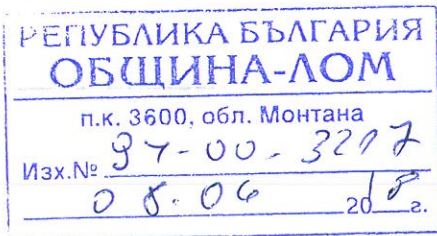 РЕПУБЛИКА БЪЛГАРИЯ
ОБЩИНА-ЛОМ
п.к. 3600, обл. Монтана
Изх.№ 94-00-3217
08.06 2018 г.